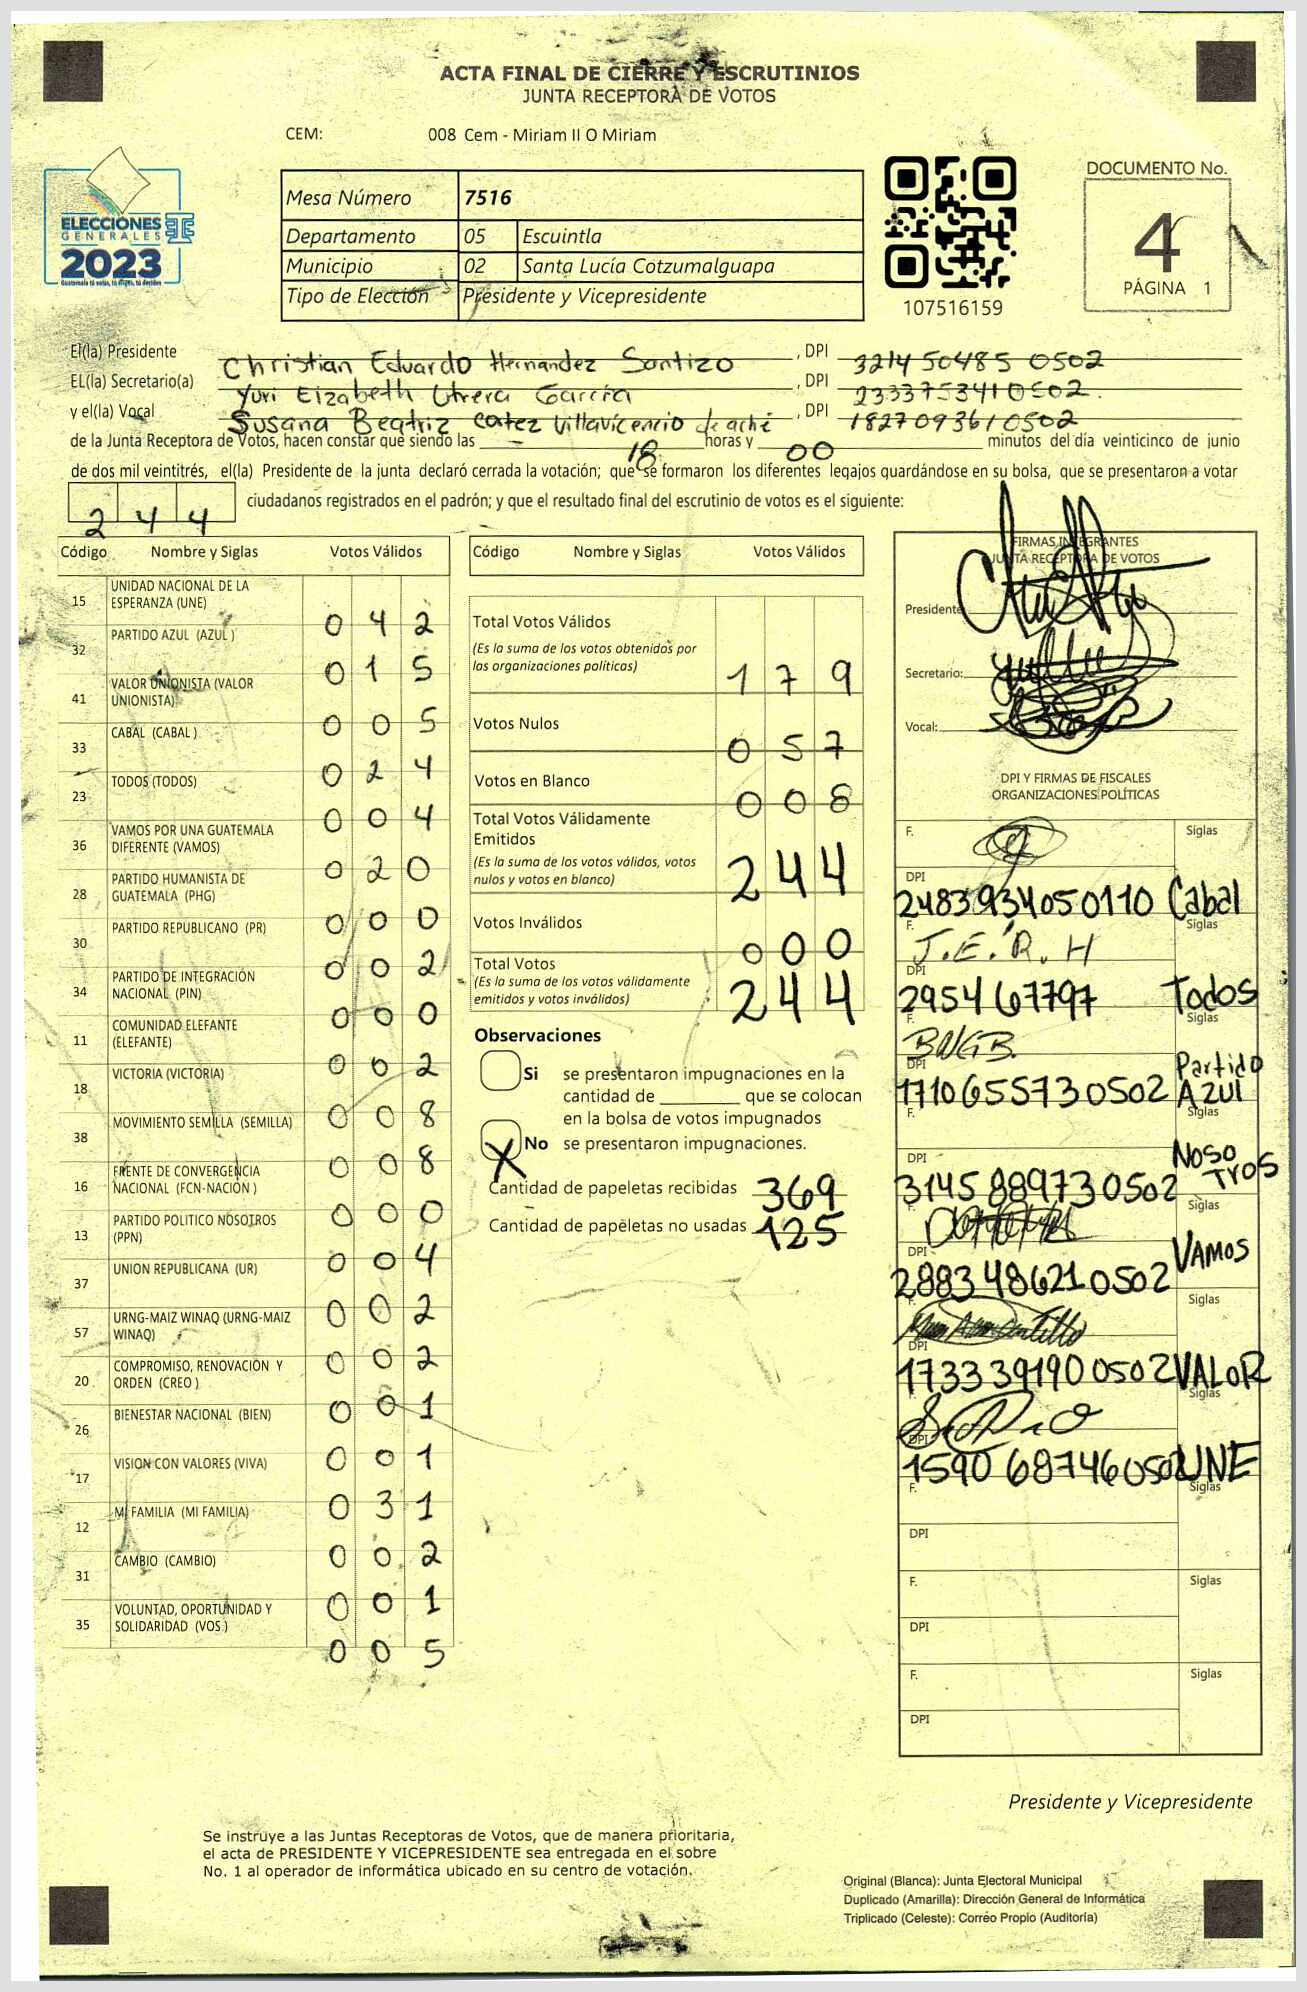 ACTA FINAL DE CIERRE Y ESCRUTINIOS
JUNTA RECEPTORA DE VOTOS
CEM: 008 Cem - Miriam II O Miriam
ELECCIONES
GENERALES
2023
Guatemala tú votas, tú eliges, tú decides
Mesa Número 7516
Departamento 05 Escuintla
Municipio 02 Santa Lucía Cotzumalguapa
Tipo de Elección Presidente y Vicepresidente
107516159
DOCUMENTO No.
4
PÁGINA 1
El(la) Presidente Christian Eduardo Hernandez Santizo , DPI 3214 50485 0502
EL(la) Secretario(a) Yuri Elizabeth Utrera García , DPI 2333753410502
y el(la) Vocal Susana Beatriz Cortez Villavicencio de aché , DPI 1827093610502
de la Junta Receptora de Votos, hacen constar que siendo las 18 horas y 00 minutos del día veinticinco de junio
de dos mil veintitrés, el(la) Presidente de la junta declaró cerrada la votación; que se formaron los diferentes legajos guardándose en su bolsa, que se presentaron a votar
244 ciudadanos registrados en el padrón; y que el resultado final del escrutinio de votos es el siguiente:
Código Nombre y Siglas Votos Válidos
15 UNIDAD NACIONAL DE LA ESPERANZA (UNE) 0 4 2
32 PARTIDO AZUL (AZUL ) 0 1 5
41 VALOR UNIONISTA (VALOR UNIONISTA) 0 0 5
33 CABAL (CABAL ) 0 2 4
23 TODOS (TODOS) 0 0 4
36 VAMOS POR UNA GUATEMALA DIFERENTE (VAMOS) 0 2 0
28 PARTIDO HUMANISTA DE GUATEMALA (PHG) 0 0 0
30 PARTIDO REPUBLICANO (PR) 0 0 2
34 PARTIDO DE INTEGRACIÓN NACIONAL (PIN) 0 0 0
11 COMUNIDAD ELEFANTE (ELEFANTE) 0 0 2
18 VICTORIA (VICTORIA) 0 0 8
38 MOVIMIENTO SEMILLA (SEMILLA) 0 0 8
16 FRENTE DE CONVERGENCIA NACIONAL (FCN-NACIÓN ) 0 0 0
13 PARTIDO POLITICO NOSOTROS (PPN) 0 0 4
37 UNION REPUBLICANA (UR) 0 0 2
57 URNG-MAIZ WINAQ (URNG-MAIZ WINAQ) 0 0 2
20 COMPROMISO, RENOVACIÓN Y ORDEN (CREO ) 0 0 1
26 BIENESTAR NACIONAL (BIEN) 0 0 1
17 VISION CON VALORES (VIVA) 0 3 1
12 MI FAMILIA (MI FAMILIA) 0 0 2
31 CAMBIO (CAMBIO) 0 0 1
35 VOLUNTAD, OPORTUNIDAD Y SOLIDARIDAD (VOS ) 0 0 5
Código Nombre y Siglas Votos Válidos
Total Votos Válidos
(Es la suma de los votos obtenidos por
las organizaciones políticas) 1 7 9
Votos Nulos 0 5 7
Votos en Blanco 0 0 8
Total Votos Válidamente
Emitidos
(Es la suma de los votos válidos, votos
nulos y votos en blanco) 2 4 4
Votos Inválidos 0 0 0
Total Votos
(Es la suma de los votos válidamente
emitidos y votos inválidos) 2 4 4
Observaciones
Si se presentaron impugnaciones en la
cantidad de ________ que se colocan
en la bolsa de votos impugnados
X No se presentaron impugnaciones.
Cantidad de papeletas recibidas 369
Cantidad de papeletas no usadas 125
FIRMAS INTEGRANTES
JUNTA RECEPTORA DE VOTOS
Presidente:
Secretario:
Vocal:
DPI Y FIRMAS DE FISCALES
ORGANIZACIONES POLÍTICAS
F. Siglas
DPI
2483934050110 Cabal
F. J.E.R.H Siglas
DPI
2954 67797 Todos
F. BNGB. Siglas
DPI Partido
1710655730502 AZUl
F. Siglas
DPI Noso
3145 889730502 Tros
F. Siglas
DPI VAMOS
2883486210502
F. Siglas
DPI
1733391900502 VALOR
Siglas
DPI
1590 687460502 UNE
F. Siglas
DPI
F. Siglas
DPI
F. Siglas
DPI
Presidente y Vicepresidente
Se instruye a las Juntas Receptoras de Votos, que de manera prioritaria,
el acta de PRESIDENTE Y VICEPRESIDENTE sea entregada en el sobre
No. 1 al operador de informática ubicado en su centro de votación.
Original (Blanca): Junta Electoral Municipal
Duplicado (Amarilla): Dirección General de Informática
Triplicado (Celeste): Correo Propio (Auditoría)